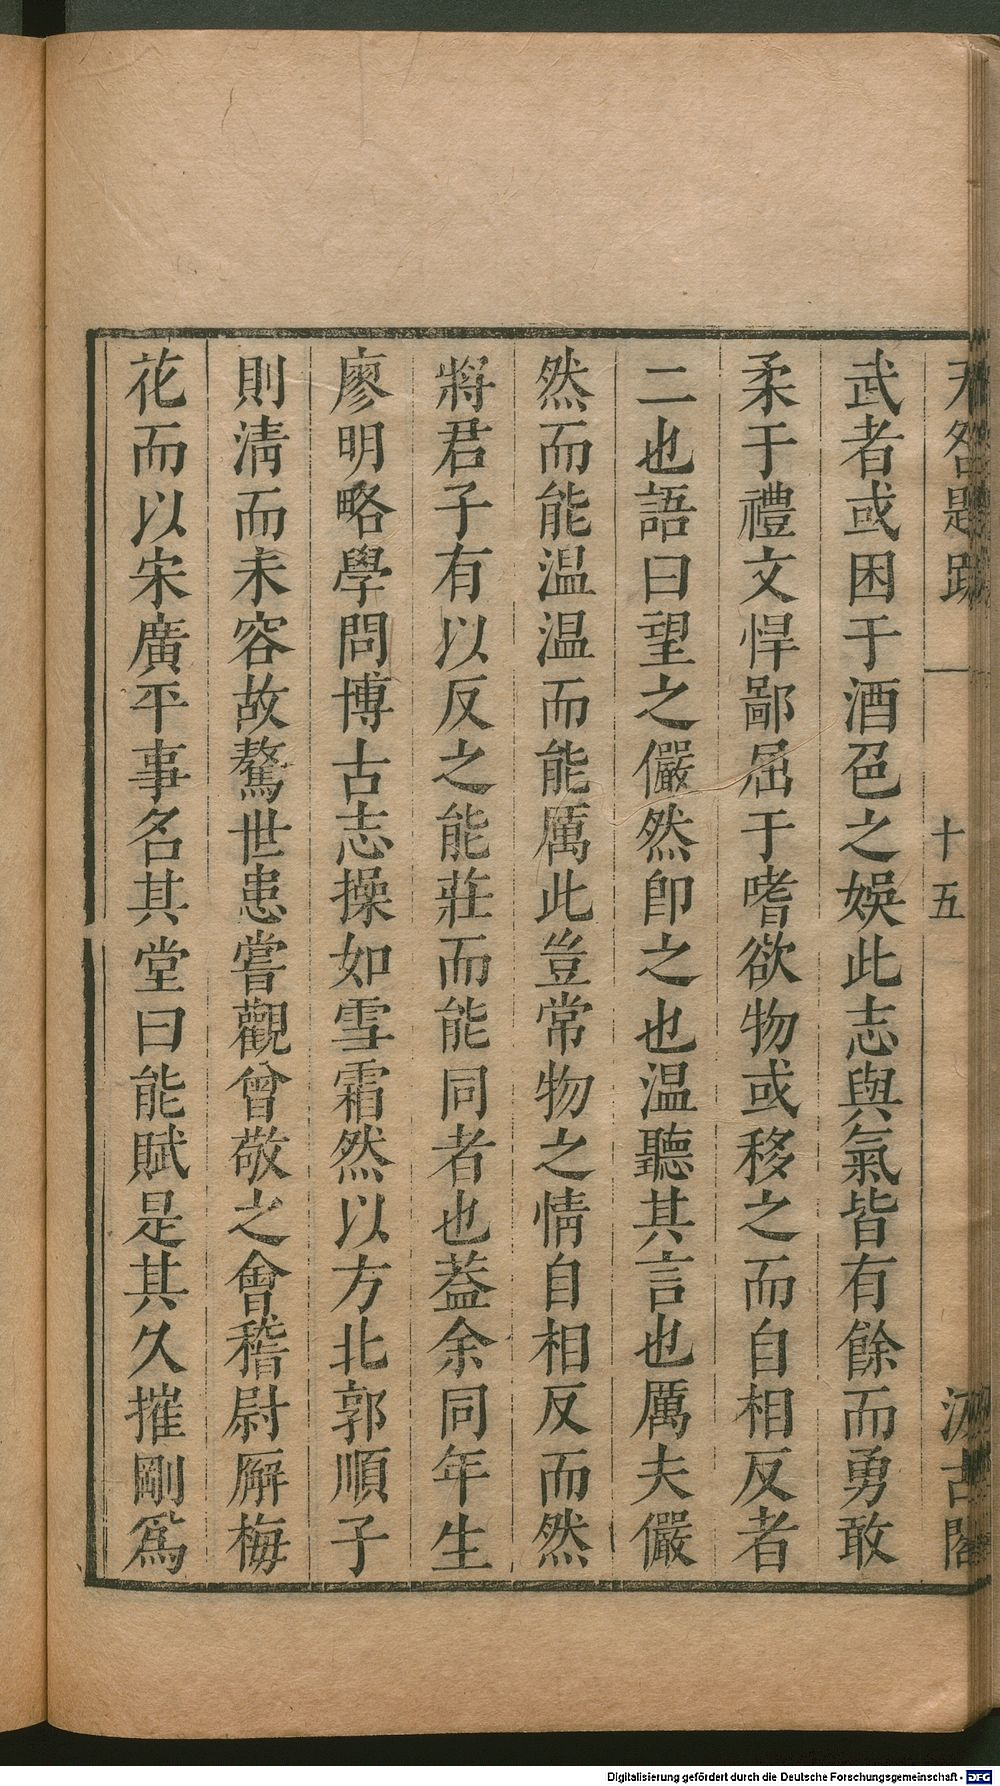 无咎題跋 一 十五 汲古閣
武者或困于酒色之娛此志與氣皆有餘而勇敢
柔于禮文悍鄙屈于嗜欲物或移之而自相反者
二也語曰望之儼然卽之也温聽其言也厲夫儼
然而能温温而能厲此豈常物之情自相反而然
將君子有以反之能莊而能同者也葢余同年生
廖明略學問博古志操如雪霜然以方北郭順子
則清而未容故驁世患嘗觀曾敬之會稽尉廨梅
花而以宋廣平事名其堂曰能賦是其久摧剛爲
Digitalisierung gefördert durch die Deutsche Forschungsgemeinschaft - DFG